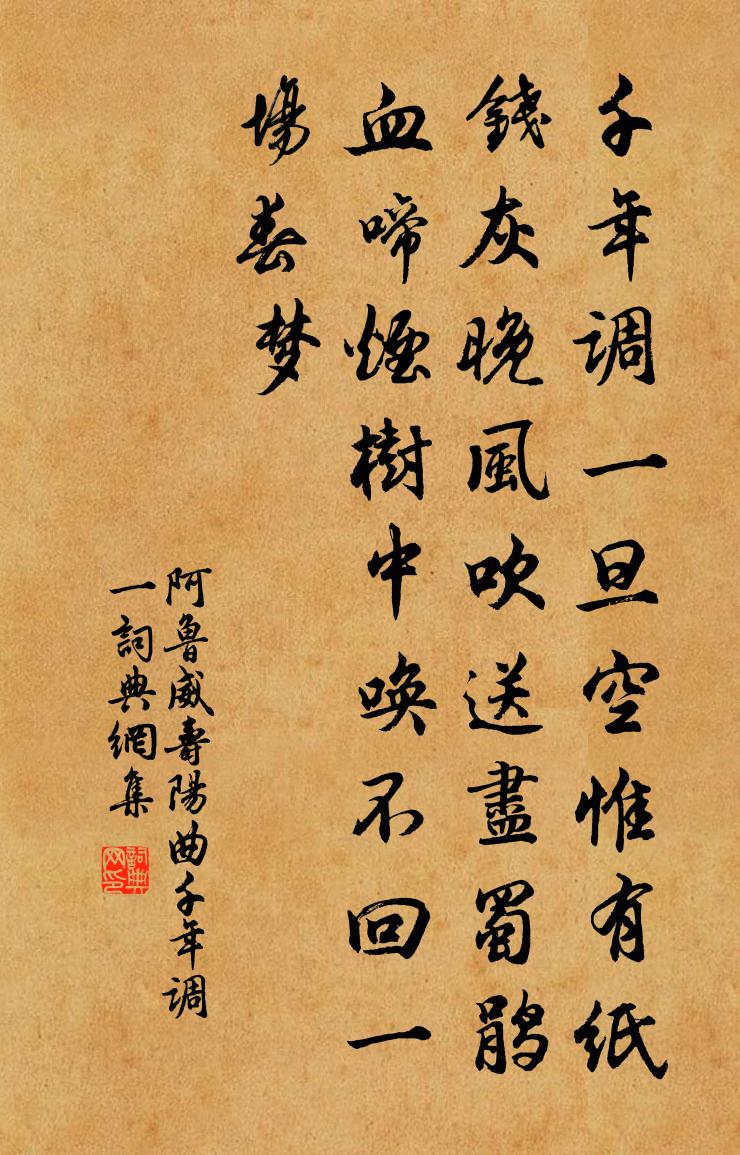 千年调一旦空惟有紙
錢灰晚風吹送盡蜀鹃
血啼煙樹中唤不回一
場春梦
阿魯威壽陽曲千年调
一詞典網集
詞典网印